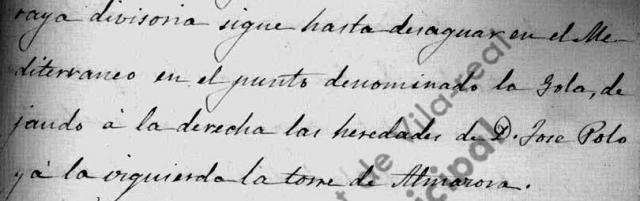 raya divisoria sigue hasta desaguar en el Me-
diterraneo en el punto denominado la Gola, de
jando á la derecha las heredades de D. Jose Polo
y á la izquierda la torre de Almazora.
t de Vila-real
cipal